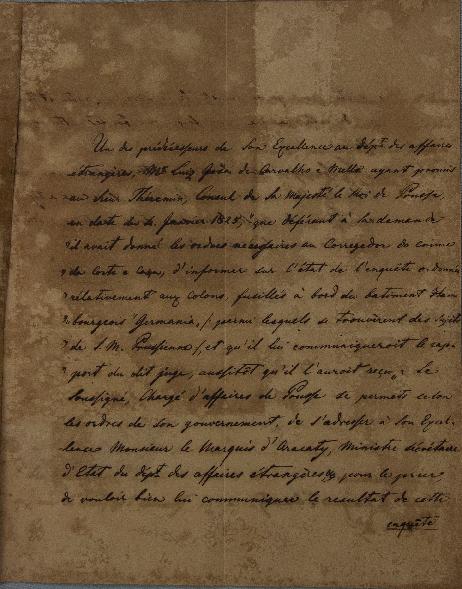 Un des prédécesseurs de Son Excellence au dépt. des affaires
étrangères, Mr. Luiz José de Carvalho e Mello ayant promis
au Sieur Theremin, Consul de Sa Majesté le Roi de Prusse,
en date du 4. Janvier 1825, "que déférant à sa demande
"il avait donné les ordres nécessaires au Corregedor do crime
"da Corte e Caza, d'informer sur l'état de l'enquête ordonnée
"relativement aux colons, fusillés à bord du batiment Ham
"bourgeois Germania, /: parmi lesquels se trouvèrent des sujets
"de S. M. Prussienne :/ et qu'il lui communiqueroit le rap-
"port du dit juge, aussitôt qu'il l'auroit reçu, " Le
Soussigné, Chargé d'affaires de Prusse se permets selon
les ordres de son gouvernement, de s'adresser à Son Excel-
lence Monsieur le Marquis d'Aracaty, Ministre Sécrétaire
d'Etat du dépt. des affaires étrangères, pour le prier
de vouloir bien lui communiquer le resultat de cette
enquête